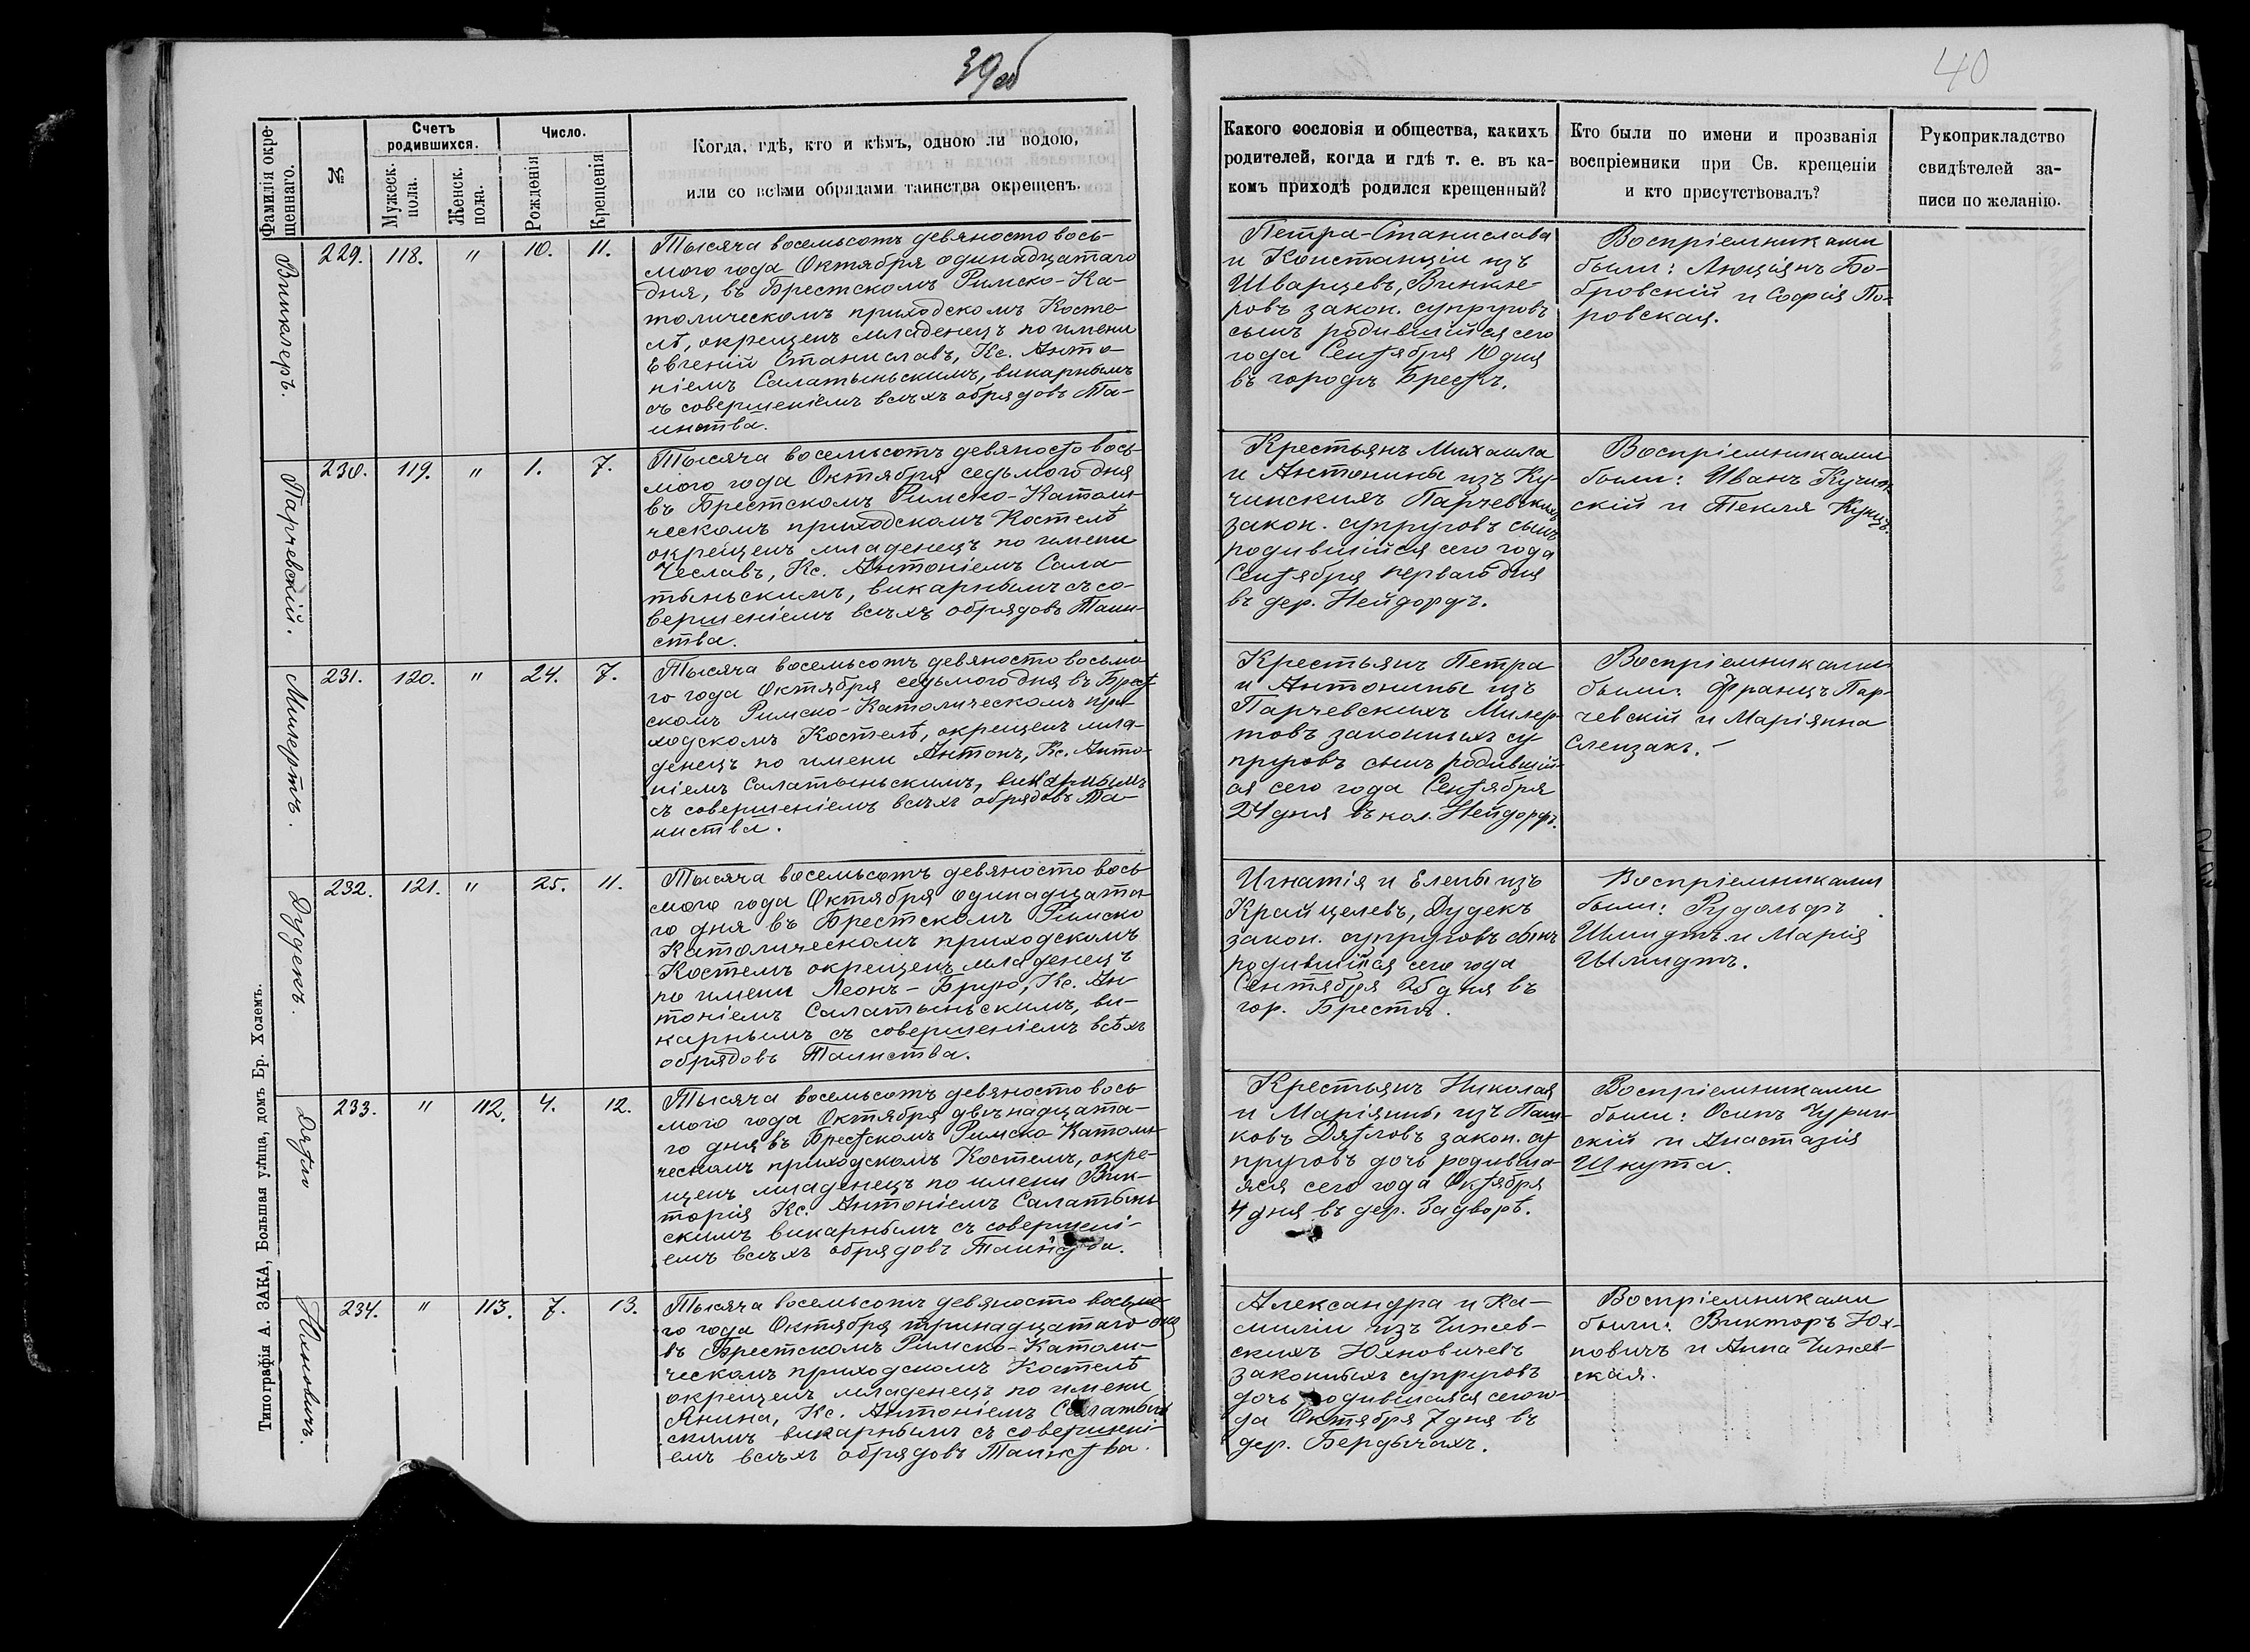 39об
Фамилія окре-
щеннаго.
№
Счетъ
родившихся.
Мужеск.
пола.
Женск.
пола.
Число.
Рожденія
Крещенія
Когда, гдѣ, кто и кѣмъ, одною ли водою,
или со всѣми обрядами таинства окрещенъ.
Винклеръ.
229. 118. " 10. 11.
Тысяча восемьсотъ девяносто вось-
мого года Октября одинадцатаго
дня, въ Брестскомъ Римско-Ка-
толическомъ приходскомъ Косте-
лѣ, окрещенъ младенецъ по имени
Евгеній Станиславъ, Кс. Анто-
ніемъ Салатыньскимъ, викарнымъ
съ совершеніемъ всѣхъ обрядовъ Та-
инства.
Парчевскій.
230. 119. " 1. 7.
Тысяча восемьсотъ девяносто вось-
мого года Октября седьмого дня
въ Брестскомъ Римско-Католи-
ческомъ приходскомъ Костелѣ
окрещенъ младенецъ по имени
Чеславъ, Кс. Антоніемъ Сала-
тыньскимъ, викарнымъ съ со-
вершеніемъ всѣхъ обрядовъ Таин-
ства.
Милертъ.
231. 120. " 24. 7.
Тысяча восемьсотъ девяносто восьмо
го года Октября седьмого дня въ Брест
скомъ Римско-Католическомъ при
ходскомъ Костелѣ, окрещенъ мла-
денецъ по имени Антонъ, Кс. Анто-
ніемъ Салатыньскимъ, викарнымъ
съ совершеніемъ всѣхъ обрядовъ Та-
инства.
Дудекъ.
232. 121. " 25. 11.
Тысяча восемьсотъ девяносто вось
мого года Октября одинадцата-
го дня въ Брестскомъ Римско
Католическомъ приходскомъ
Костелѣ окрещенъ младенецъ
по имени Леонъ-Бруно, Кс. Ан
тоніемъ Салатыньскимъ, ви-
карнымъ съ совершеніемъ всѣхъ
обрядовъ Таинства.
233. " 112. 4. 12.
Тысяча восемьсотъ девяносто вось
мого года Октября двѣнадцата-
го дня въ Брестскомъ Римско-Католи-
ческомъ приходскомъ Костелѣ, окре-
щенъ младенецъ по имени Вик-
торія Кс. Антоніемъ Салатынь
скимъ викарнымъ съ совершені-
емъ всѣхъ обрядовъ Таинства.
Юхновичъ.
234. " 113. 7. 13.
Тысяча восемьсотъ девяносто восьмо
го года Октября тринадцатаго дня
въ Брестскомъ Римско-Католи-
ческомъ приходскомъ Костелѣ
окрещенъ младенецъ по имени
Янина, Кс. Антоніемъ Салатынь
скимъ викарнымъ съ совершені-
емъ всѣхъ обрядовъ Таинства.
Типографія А. ЗАКА, Большая улица, домъ Ер. Холемъ.
40
Какого сословія и общества, какихъ
родителей, когда и гдѣ т. е. въ ка-
комъ приходѣ родился крещенный?
Кто были по имени и прозванія
воспріемники при Св. крещеніи
и кто присутствовалъ?
Рукоприкладство
свидѣтелей за-
писи по желанію.
Петра-Станислава
и Констанціи изъ
Шварцевъ, Винкле-
ровъ закон. супруговъ
сынъ родившійся сего
года Сентября 10 дня
въ городѣ Брестѣ.
Воспріемниками
были: Люціянъ Бо-
бровскій и Софія По-
ровская.
Крестьянъ Михаила
и Антонины изъ Ку-
чинскихъ Парчевскихъ
закон. супруговъ сынъ
родившійся сего года
Сентября перваго дня
въ дер. Нейдорфъ.
Воспріемниками
были: Иванъ Кучин-
скій и Текля Кунцъ.
Крестьянъ Петра
и Антонины изъ
Парчевскихъ Милер-
товъ законныхъ су
пруговъ сынъ родившій-
ся сего года Сентября
24 дня въ кол. Нейдорфъ.
Воспріемниками
были: Францъ Пар-
чевскій и Маріянна
Слензакъ.
Игнатія и Елены изъ
Крайцелевъ, Дудекъ
закон. супруговъ сынъ
родившійся сего года
Сентября 25 дня въ
гор. Брестѣ.
Воспріемниками
были: Рудольфъ
Шмидтъ и Марія
Шмидтъ.
Крестьянъ Николая
и Маріянны изъ Паш-
ковъ Дятловъ закон. су
пруговъ дочь родивша-
яся сего года Октября
4 дня въ дер. Задворѣ.
Воспріемниками
были: Осипъ Чурин-
скій и Анастазія
Шкута.
Александра и Ка-
миліи изъ Чижев-
скихъ Юхновичевъ
законныхъ супруговъ
дочь родившаяся сего го-
да Октября 7 дня въ
дер. Бердычахъ.
Воспріемниками
были: Викторъ Юх-
новичъ и Анна Чижев-
ская.